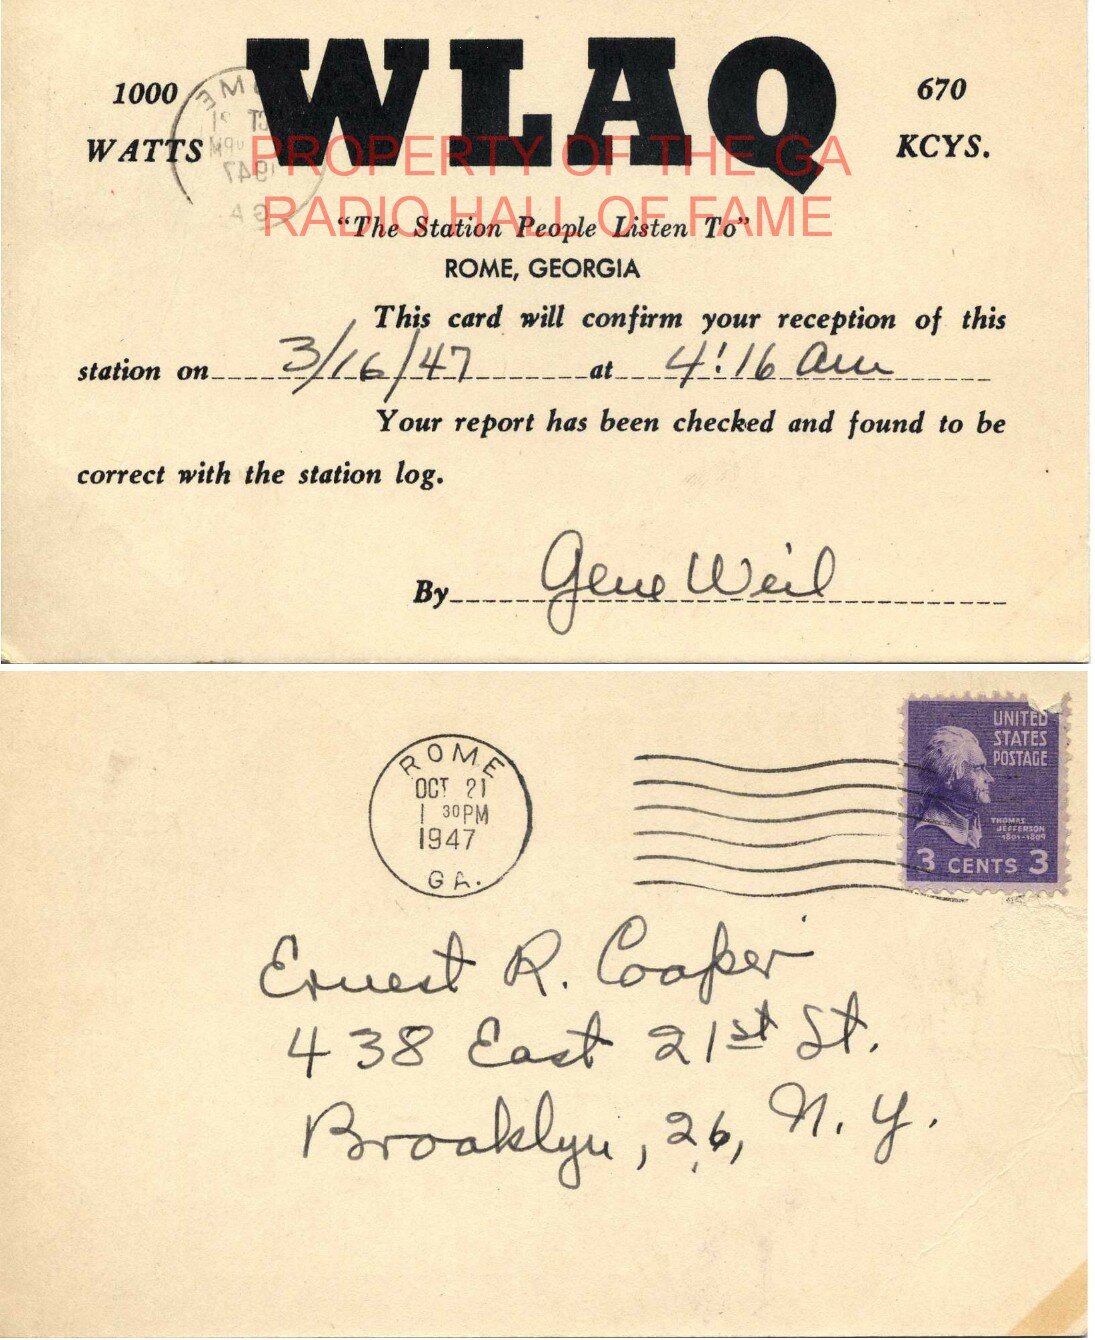 1000 WLAQ 670
WATTS KCYS.
PROPERTY OF THE GA
RADIO HALL OF FAME
"The Station People Listen To"
ROME, GEORGIA
This card will confirm your reception of this
station on 3/16/47 at 4:16 am
Your report has been checked and found to be
correct with the station log.
By Gene Weil
ROME
OCT 21
1 30PM
1947
GA.
UNITED
STATES
POSTAGE
THOMAS
JEFFERSON
1801-1809
3 CENTS 3
Ernest R. Cooper
438 East 21st St.
Brooklyn, 26, N. Y.